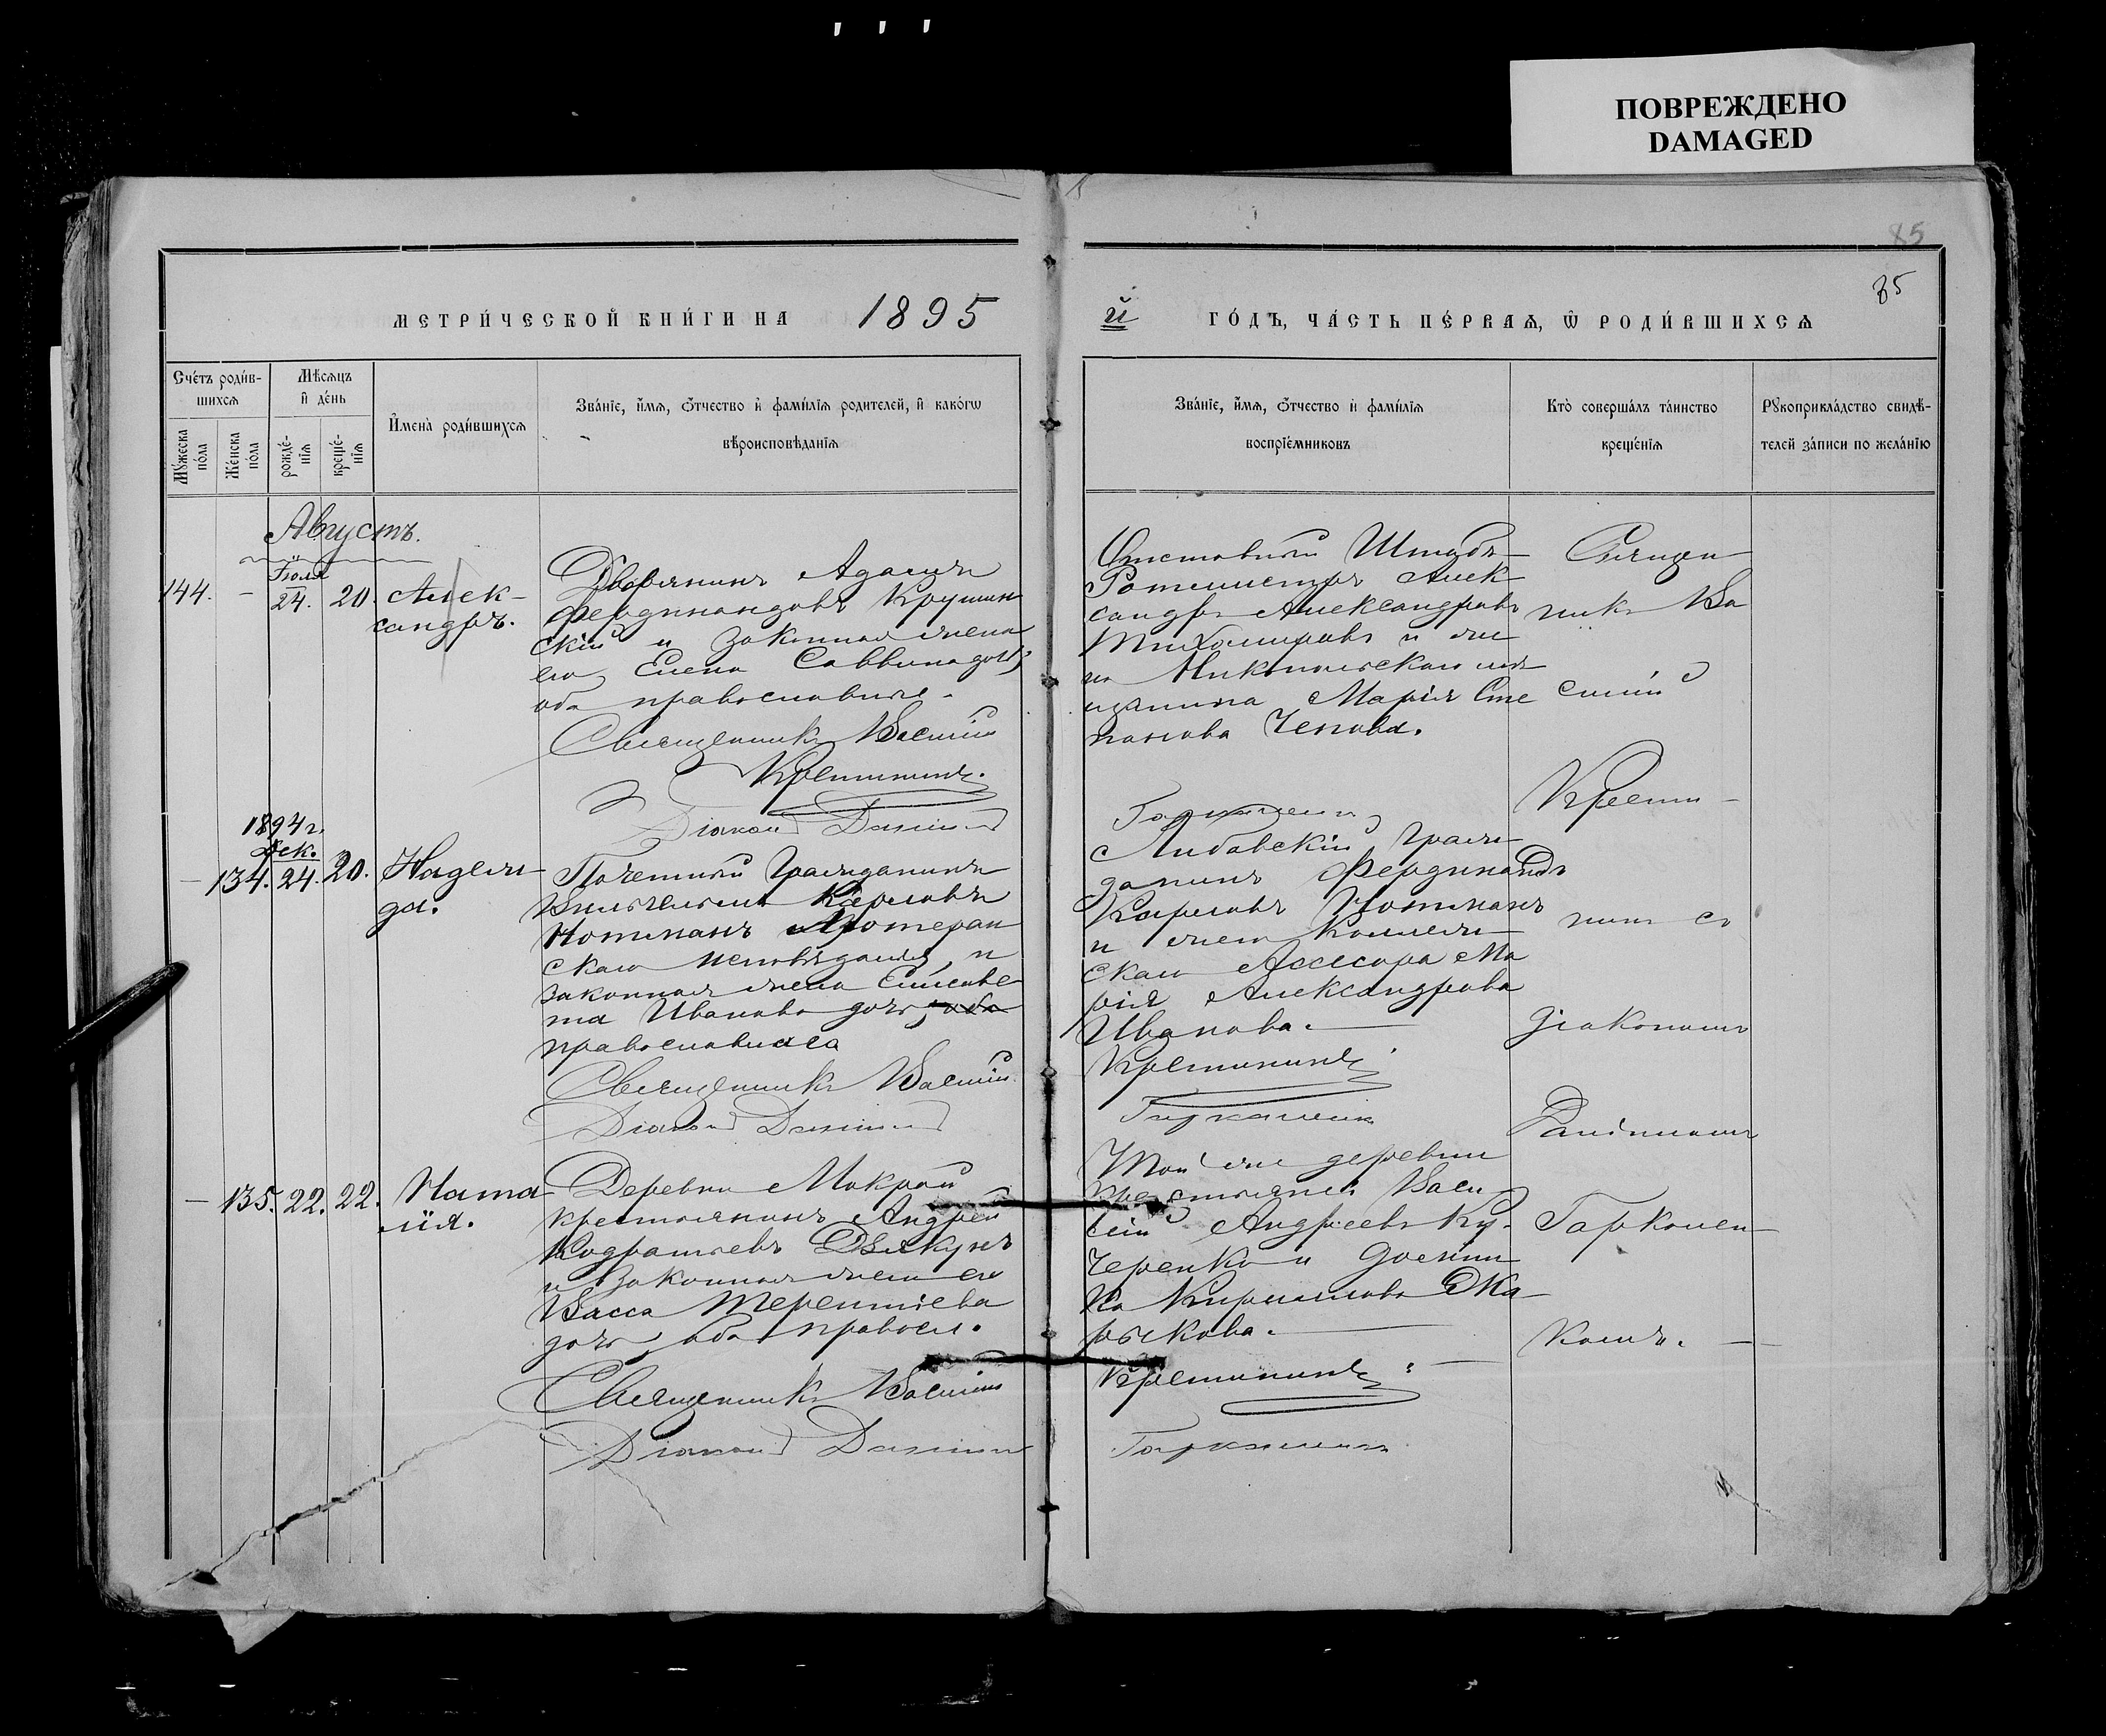 ПОВРЕЖДЕНО
DAMAGED
85
85
МЕТРИ́ЧЕСКОЙ КНИ́ГИ НА 1895
й ГО́ДЪ, ЧА́СТЬ ПЕ́РВАѦ, Ѿ РОДИ́ВШИХСѦ
Сче́тъ роди́в-
шихсѧ
Мꙋ́жеска
по́ла
Же́нска
по́ла
Мѣ́сѧцъ
и҆ де́нь
рожде́-
нїѧ
креще́-
нїѧ
И҆мена̀ роди́вшихсѧ
Зва́нїе, и҆́мѧ, ѻ҆́тчество и҆ фами́лїѧ родителей, и҆ како́гѡ
вѣроисповѣ́данїѧ
Зва́нїе, и҆́мѧ, ѻ҆́тчество и҆ фами́лїѧ
воспрїе́мниковъ
Кто̀ соверша́лъ та́инство
креще́нїѧ
Рꙋкоприкла́дство свидѣ́-
телей за́писи по жела́нїю
Августъ.
144. - Іюля 24. 20. Алек-
сандръ.
Дворянинъ Адамъ
Фердинандовъ Крушин
скій и законная жена
его Елена Саввина дочь,
оба православные.
Священникъ Василій
Кретининъ.
Діаконъ
Отставной Штабъ-
Ротмистръ Алек
сандръ Александровъ
Тихомировъ и же
на Никопольскаго мѣ
щанина Марія Сте
панова Чехова.
Священ
никъ Ва
силій
Крети-
нинъ съ
діакономъ
Гаркошен
комъ.
- 134. 1894 г. Дек. 24. 20. Надеж
да.
Почетный Гражданинъ
Вильгельмъ Карловъ
Нотманъ Лютеран
скаго исповѣданія, и
законная жена Елисаве
та Иванова дочь, оба
православная
Священникъ Василій
Діаконъ
Либавскій граж
данинъ Фердинандъ
Карловъ Нотманъ
и жена Коллеж
скаго Ассесора Ма
рія Александрова
Иванова.
Кретининъ.
- 135. 22. 22. Ната
лія.
Деревни Мокрой
крестьянинъ Андрей
Кодратьевъ Дзякунъ
и законная жена его
Васса Терентьева
дочь, оба правосл.
Священникъ Василій
Діаконъ
Той же деревни
крестьяне Васи
лій Андреевъ Ку-
черенко и
ка Кириллова
рыкова.
Кретининъ.